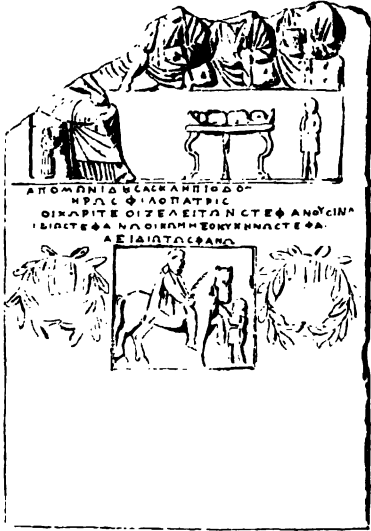 ΑΠΟΜΩΝΙΔΗΣΑΣΚΛΗΠΙΟΔΟ-
ΗΡΩΣ ΦΙΛΟΠΑΤΡΙΣ
ΟΙΧΩΡΙΤΕΟΙΖΕΛΕΙΤΩΝΣΤΕΦΑΝΟΥΣΙΝ
ΙΔΙΩΣΤΕΦΑΝΩΟΙΚ
ΑΣΙΔΙΩΤΩΣΦΑΝΩ